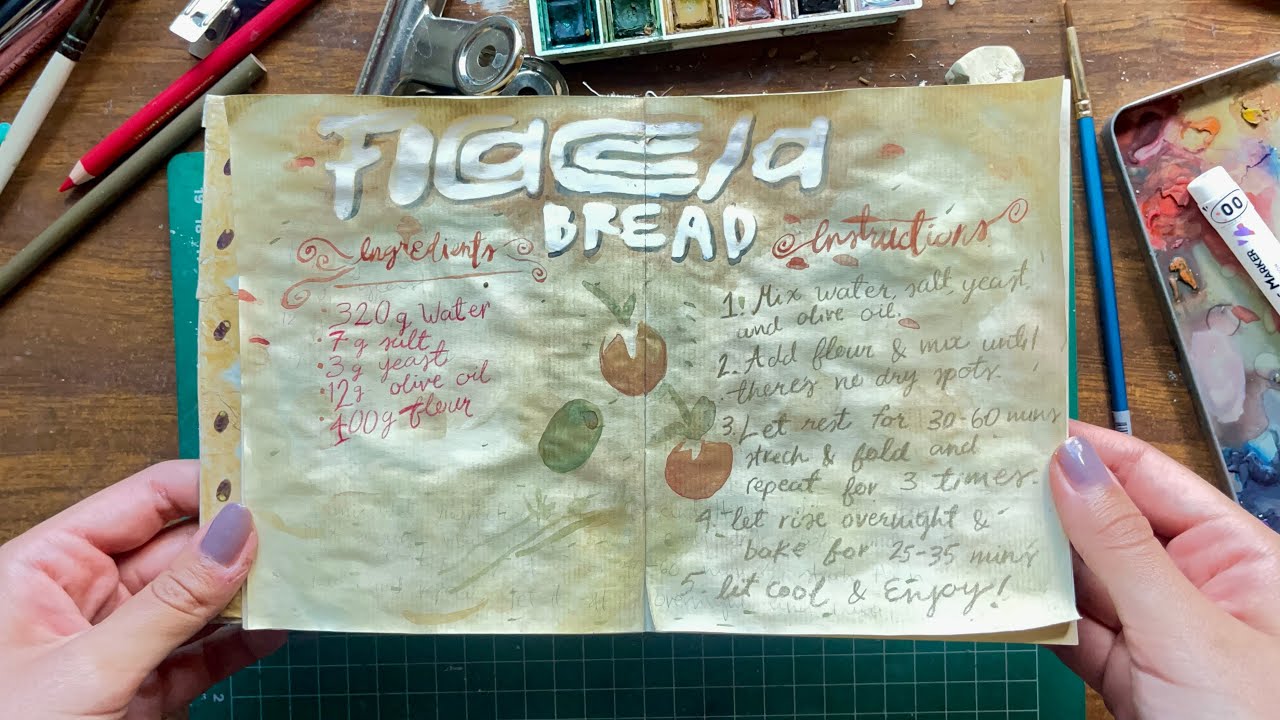 FlaCCia
BREAD
Ingredients
· 320g water
· 7g salt
· 3g yeast
· 12g olive oil
· 400g fleur
Instructions
1. Mix water, salt, yeast,
and olive oil.
2. Add fleur & mix until
theres no dry spots.
3. Let rest for 30-60 mins
strech & fold and
repeat for 3 times.
4. let rise overnight &
bake for 25-35 mins
5. let cool & Enjoy!
00
MARKER